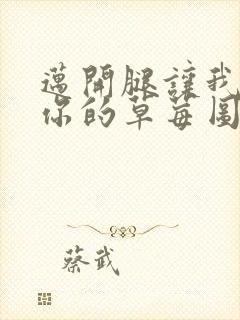 邁開腿讓我
你的草莓圖
蔡武